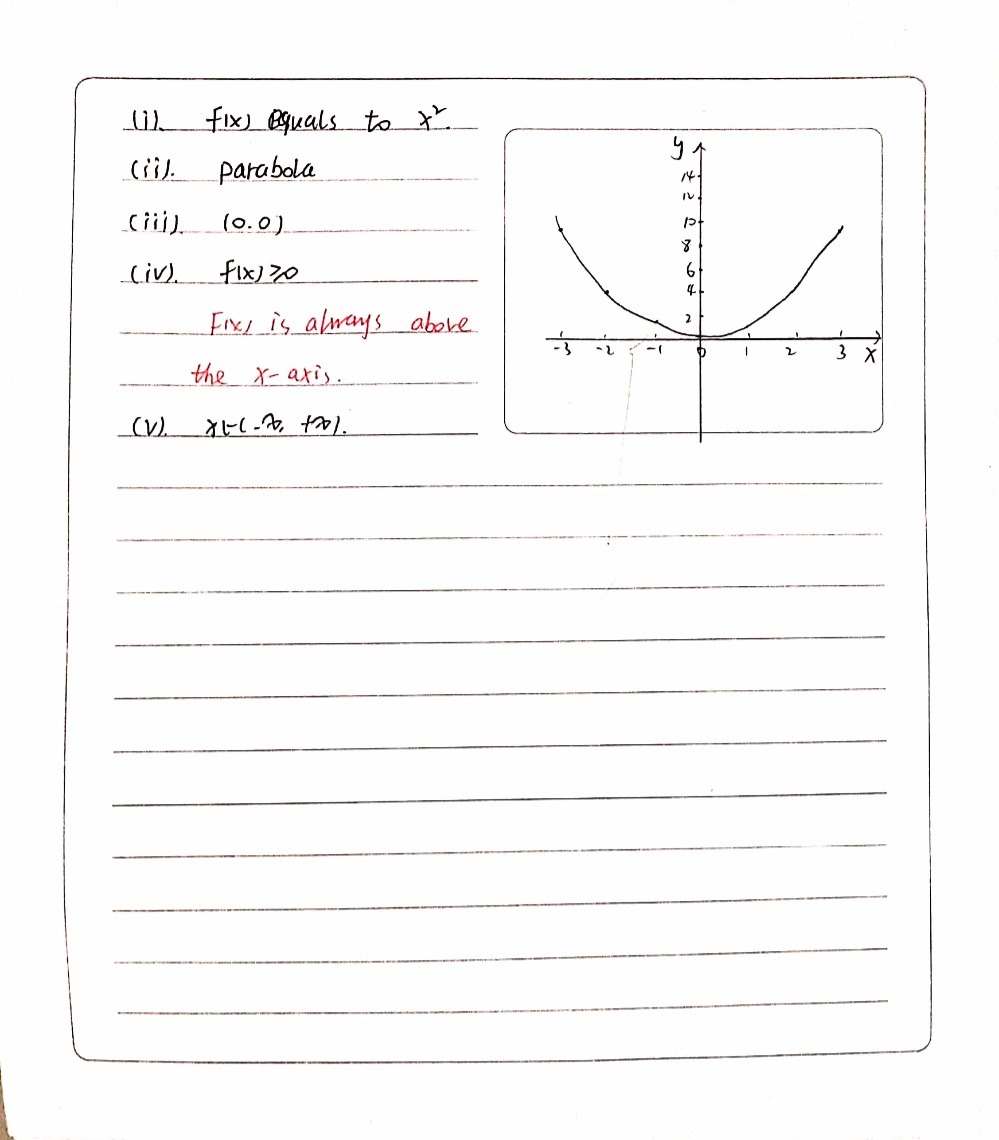 (i). f(x) equals to x².
(ii). parabola
(iii). (0.0)
(iv). f(x)≥0
F(x) is always above
the x-axis.
(v). x∈(-∞, +∞).
y
14
12
10
8
6
4
2
-3 -2 -1 0 1 2 3 x